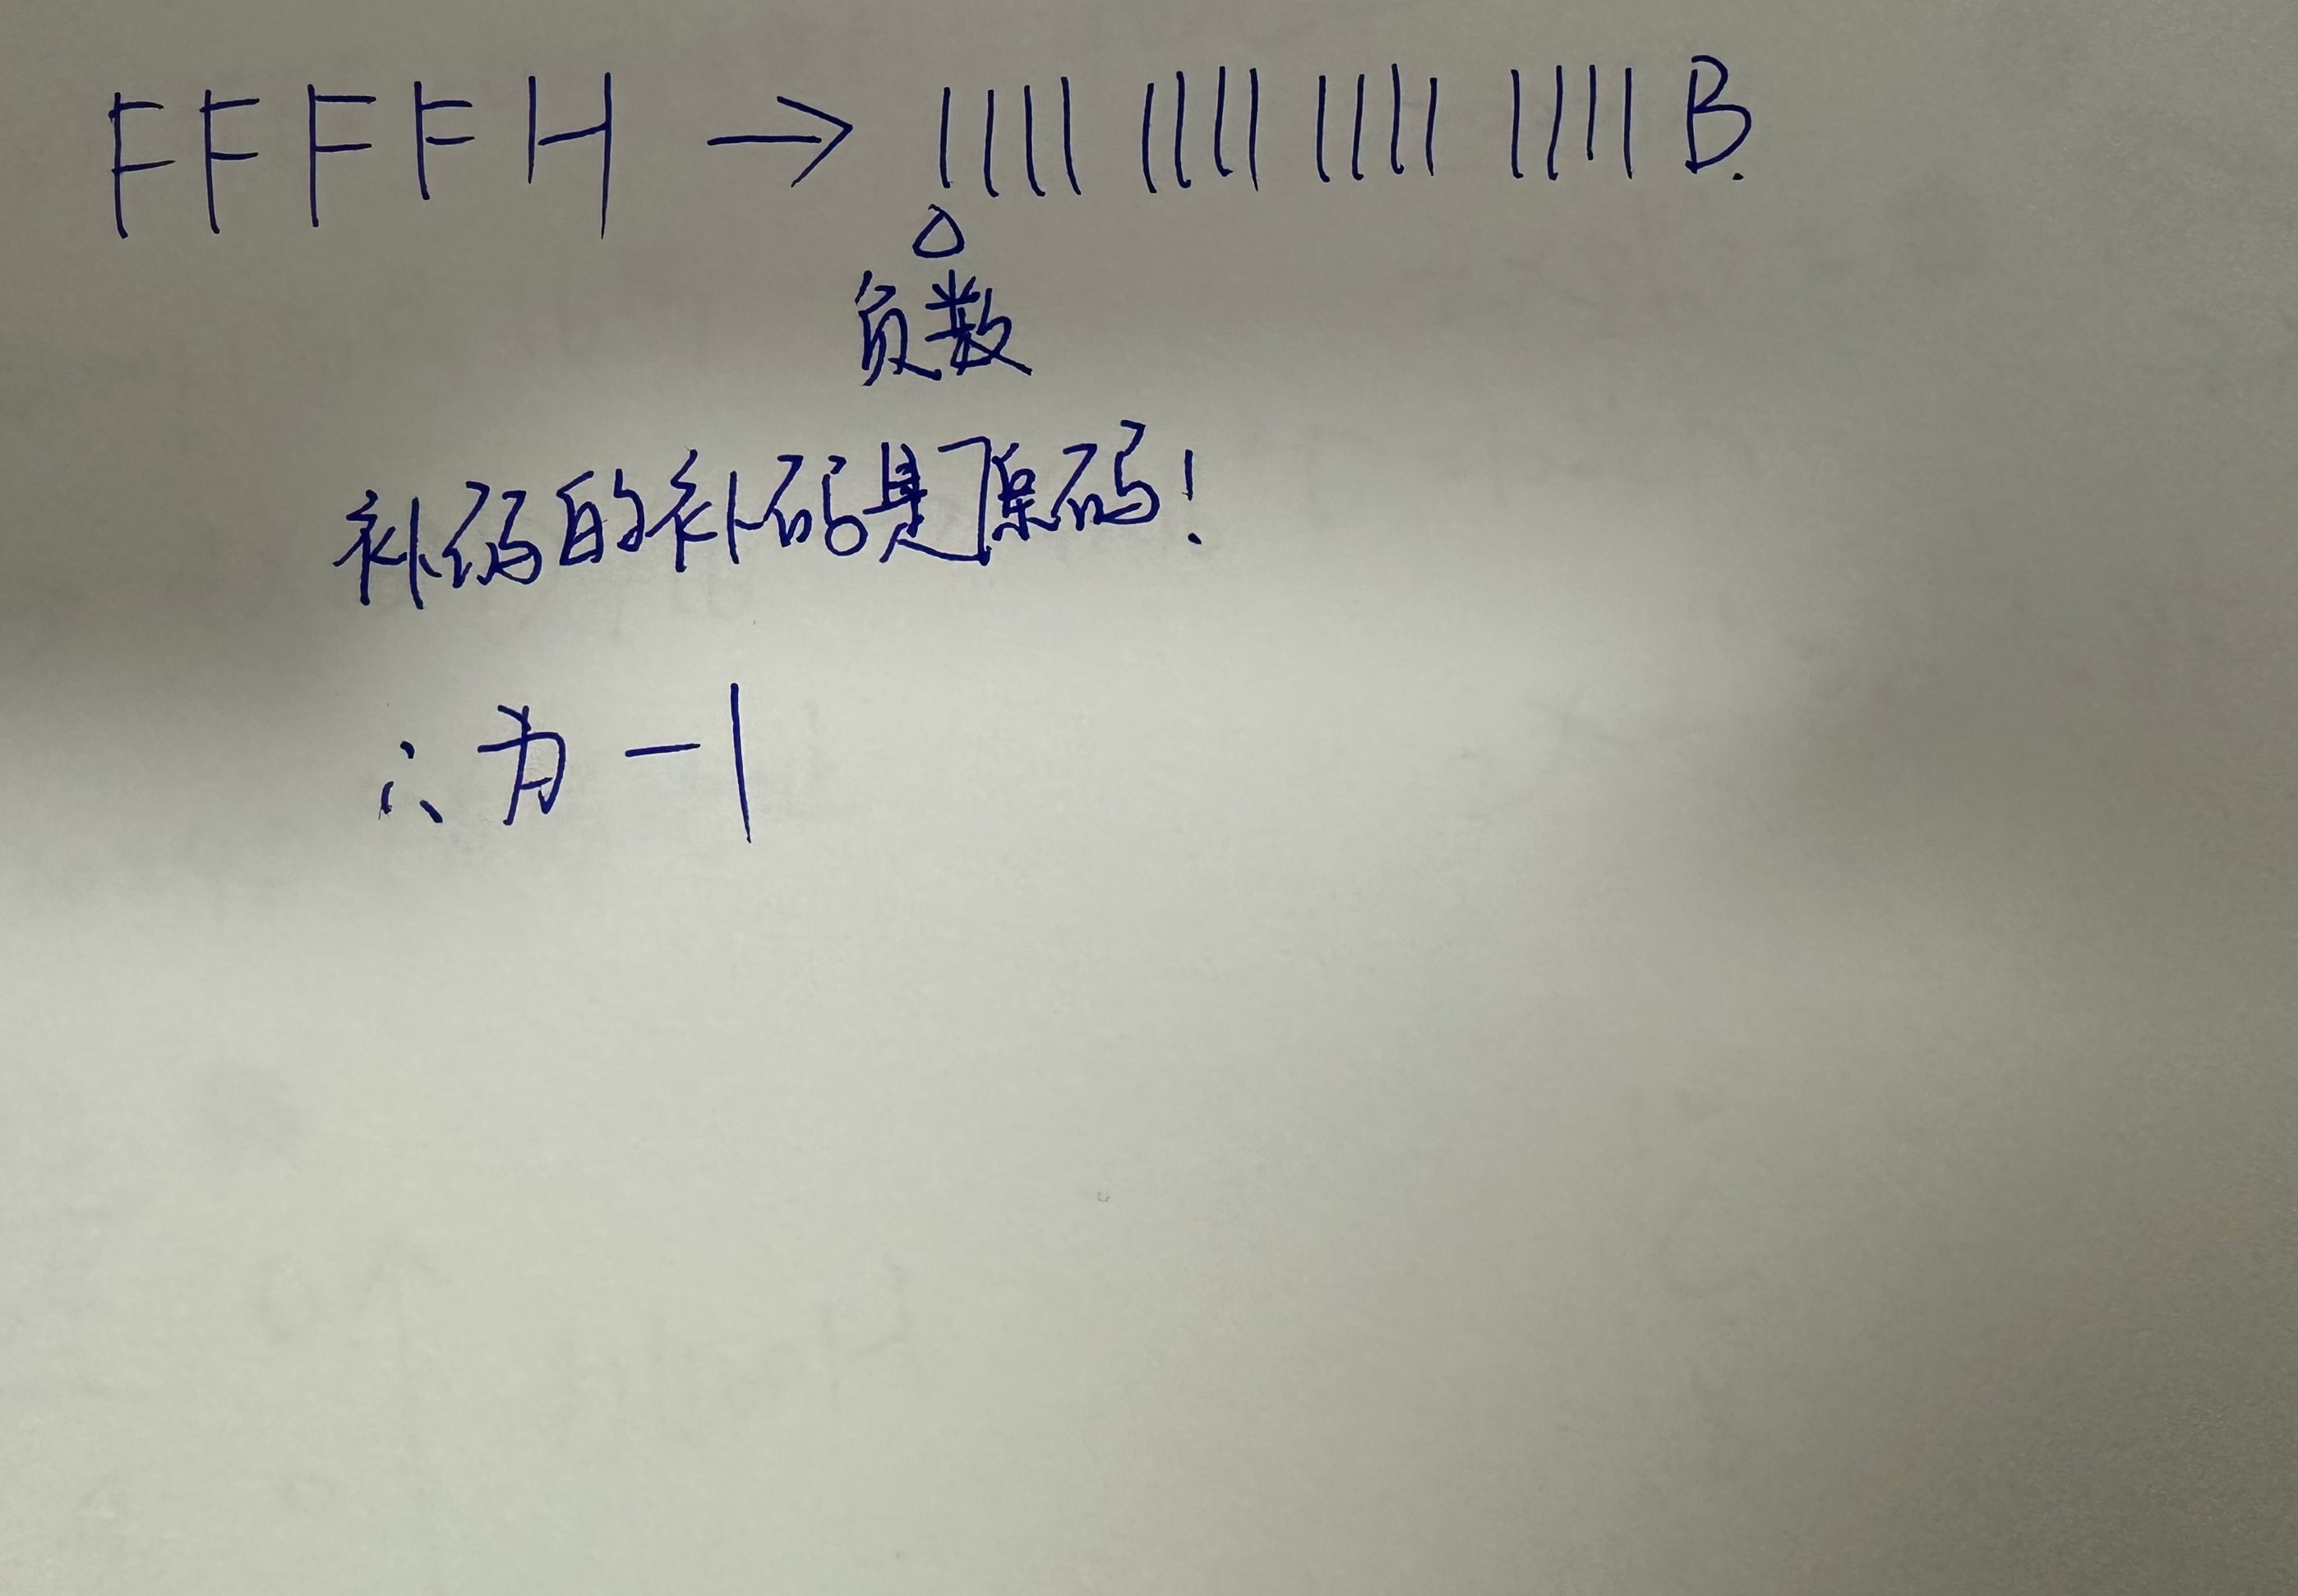 FFFFH → 1111 1111 1111 1111 B.
负数
补码的补码是原码!
∴为 -1